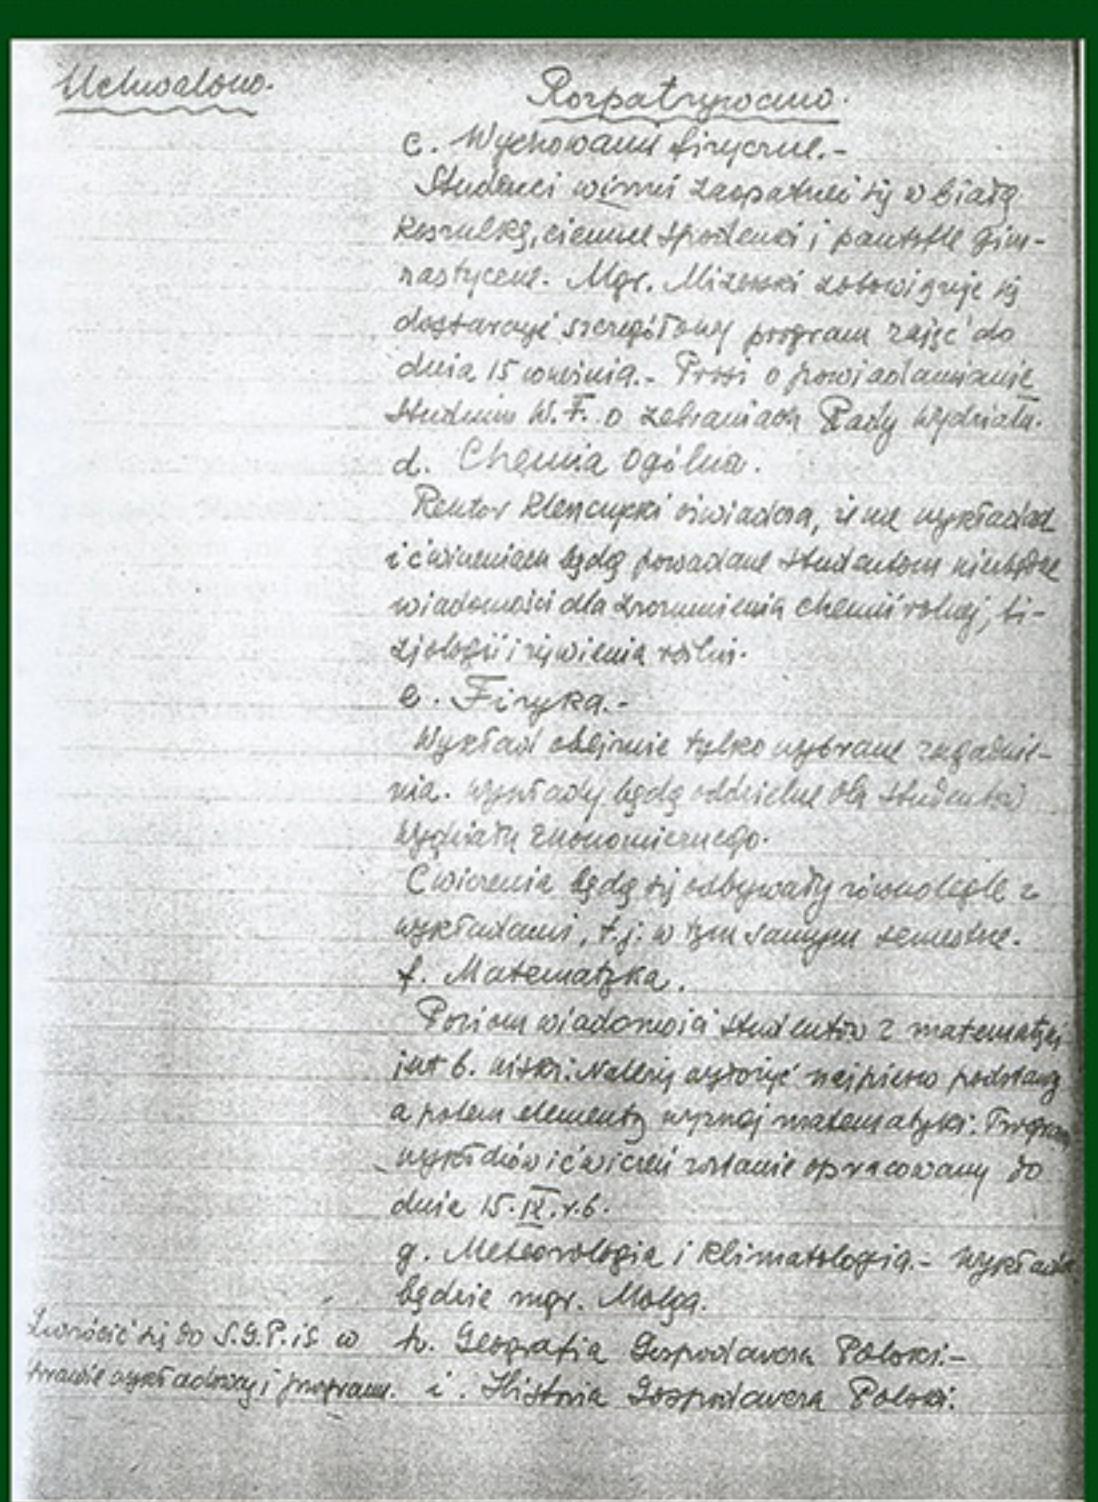 Uchwalono.
Rozpatrywano.
c. Wychowanie fizyczne.-
Studenci winni zaopatrzeć się w białą
koszulkę, ciemne spodenki i pantofle gim-
nastyczne. Mgr. zobowiązuje się
dostarczyć szczegółowy program zajęć do
dnia 15 września.- Prosi o powiadamianie
Studium W.F. o zebraniach Rady Wydziału.
d. Chemia Ogólna.
Rektor oświadcza, że na wykładach
i ćwiczeniach będą podawane studentom niezbędne
wiadomości dla zrozumienia chemii rolnej, fi-
zjologii i żywienia roślin.
e. Fizyka.-
Wykład obejmie tylko wybrane zagadnie-
nia. Wykłady będą oddzielne dla studentów
Wydziału Ekonomicznego.
Ćwiczenia będą się odbywały równolegle z
wykładami, t.j. w tym samym semestrze.
f. Matematyka.
Poziom wiadomości studentów z matematyki
jest b. niski. Należy wyłożyć najpierw podstawy
a potem elementy wyższej matematyki. Program
wykładów i ćwiczeń zostanie opracowany do
dnia 15.IX.r.b.
g. Meteorologia i Klimatologia.- Wykładać
będzie mgr. Molga.
Zwrócić się do S.G.P.iS. w
h. Geografia Gospodarcza Polski.-
sprawie wykładowcy i program.
i. Historia Gospodarcza Polski.